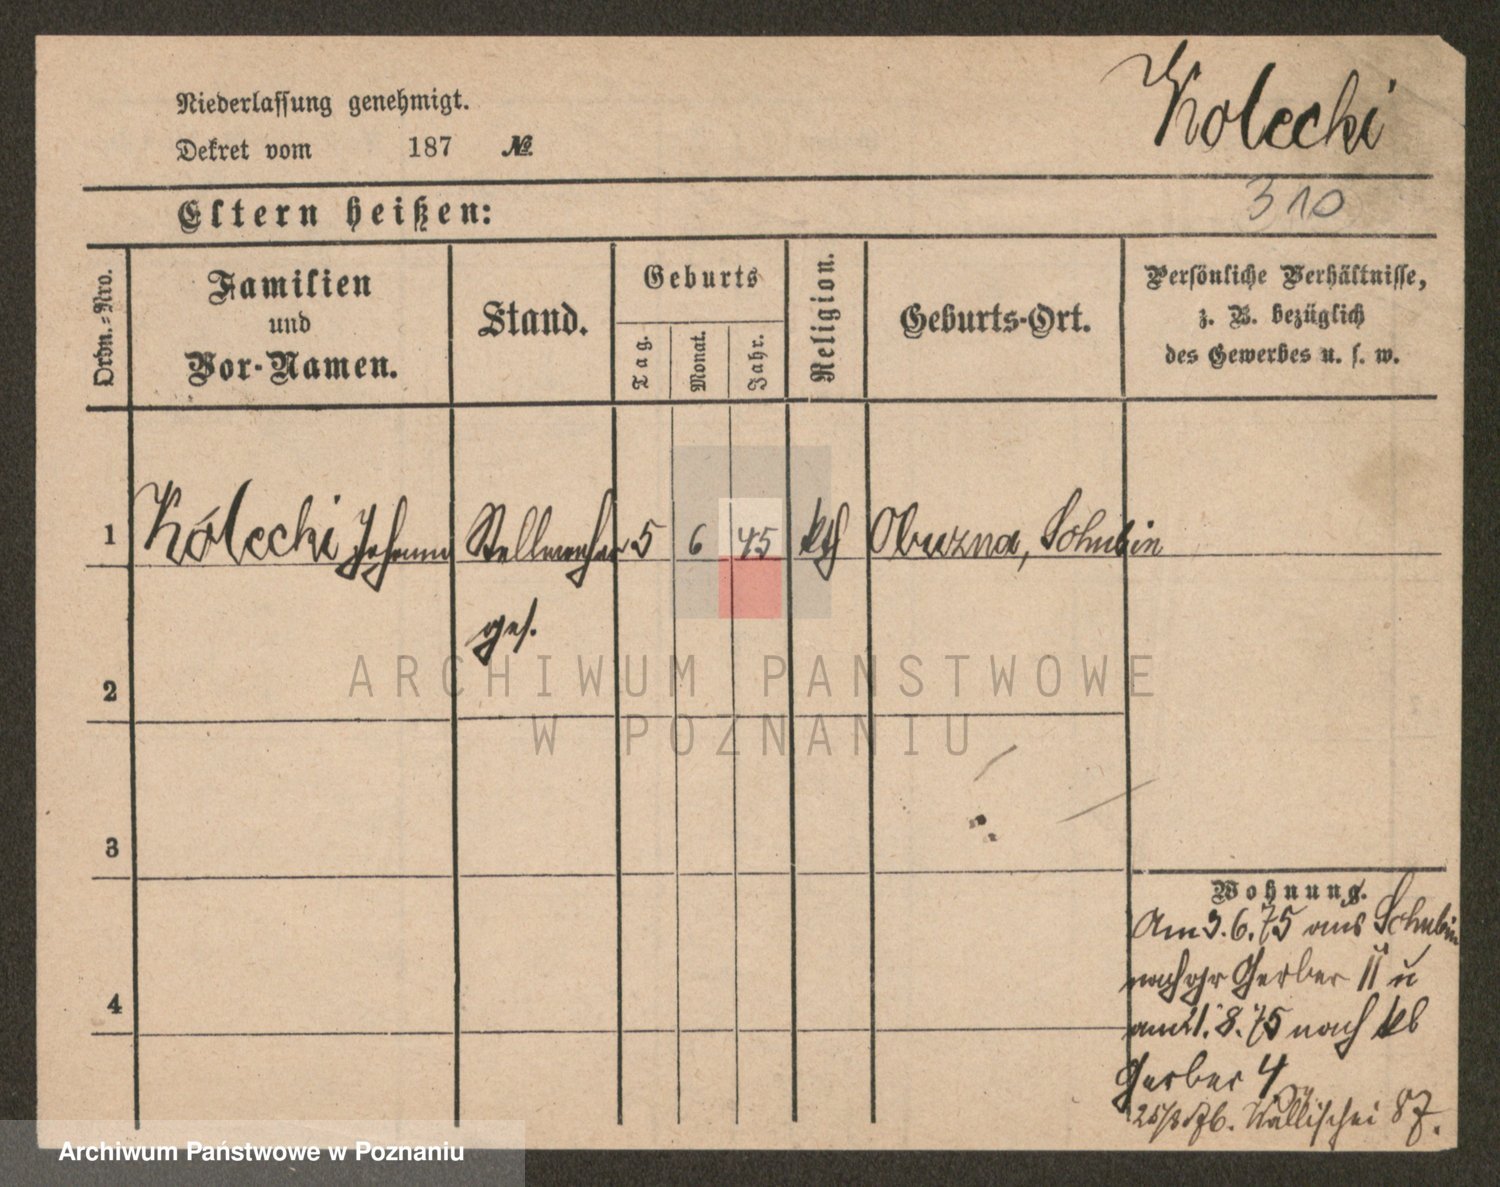 Kolecki
Niederlassung genehmigt.
Dekret vom 187 №
310
Eltern heißen:
Ordn.-Nro.
Familien
und
Vor-Namen.
Stand.
Geburts
Tag.
Monat.
Jahr.
Religion.
Geburts-Ort.
Persönliche Verhältnisse,
z. B. bezüglich
des Gewerbes u. s. w.
1 Kolecki Johann Stellmacher 5 6 45 kth Obrzna, Schubin
ges.
2
3
4
Wohnung.
Am 3.6.75 aus Schubin
nach gr Gerber 11 u
am 21.8.75 nach kl
Gerber 4
Wallischei 87.
ARCHIWUM PAŃSTWOWE
W POZNANIU
Archiwum Państwowe w Poznaniu